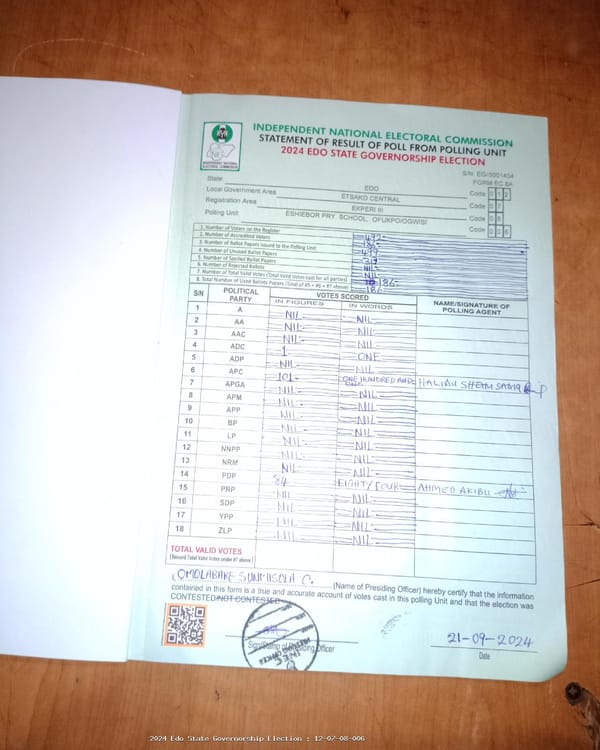 INDEPENDENT NATIONAL ELECTORAL COMMISSION
STATEMENT OF RESULT OF POLL FROM POLLING UNIT
2024 EDO STATE GOVERNORSHIP ELECTION
S/N: EG/0001454
FORM EC 8A
State EDO Code 0 1 2
Local Government Area ETSAKO CENTRAL Code 0 7
Registration Area EKPERI III Code 0 8
Polling Unit ESHIEBOR PRY. SCHOOL, OFUKPO/OGWISI Code 0 0 6
1. Number of Voters on the Register 497-
2. Number of Accredited Voters 186-
3. Number of Ballot Papers Issued to the Polling Unit 497-
4. Number of Unused Ballot Papers 311
5. Number of Spoiled Ballot Papers NIL-
6. Number of Rejected Ballots NIL-
7. Number of Total Valid Votes (Total Valid Votes cast for all parties) 186-
8. Total Number of Used Ballots Papers (Total of #5 + #6 + #7 above) 186
S/N POLITICAL PARTY VOTES SCORED NAME/SIGNATURE OF POLLING AGENT
IN FIGURES IN WORDS
1 A NIL- NIL-
2 AA NIL- NIL
3 AAC NIL- NIL
4 ADC 1- ONE
5 ADP NIL- NIL
6 APC 101- ONE HUNDRED AND ONE HALIDU SHETM SABIR
7 APGA NIL- NIL-
8 APM NIL- NIL-
9 APP NIL- NIL-
10 BP NIL- NIL-
11 LP NIL- NIL-
12 NNPP NIL- NIL-
13 NRM NIL- NIL-
14 PDP 84 EIGHTY FOUR AHMED AKIBU
15 PRP NIL NIL-
16 SDP NIL NIL-
17 YPP NIL NIL-
18 ZLP NIL NIL-
TOTAL VALID VOTES
(Record Total Valid Votes under #7 above)
I, OMOLABAKE SUNMISOLA C. (Name of Presiding Officer) hereby certify that the information
contained in this form is a true and accurate account of votes cast in this polling Unit and that the election was
CONTESTED/NOT CONTESTED
Sign/Stamp of Presiding Officer
21-09-2024
Date
2024 Edo State Governorship Election : 12-07-08-006